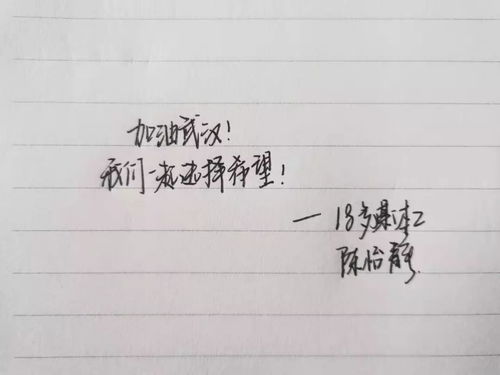 加油武汉!
我们一起选择希望!
— 18多媒体2
陈怡静